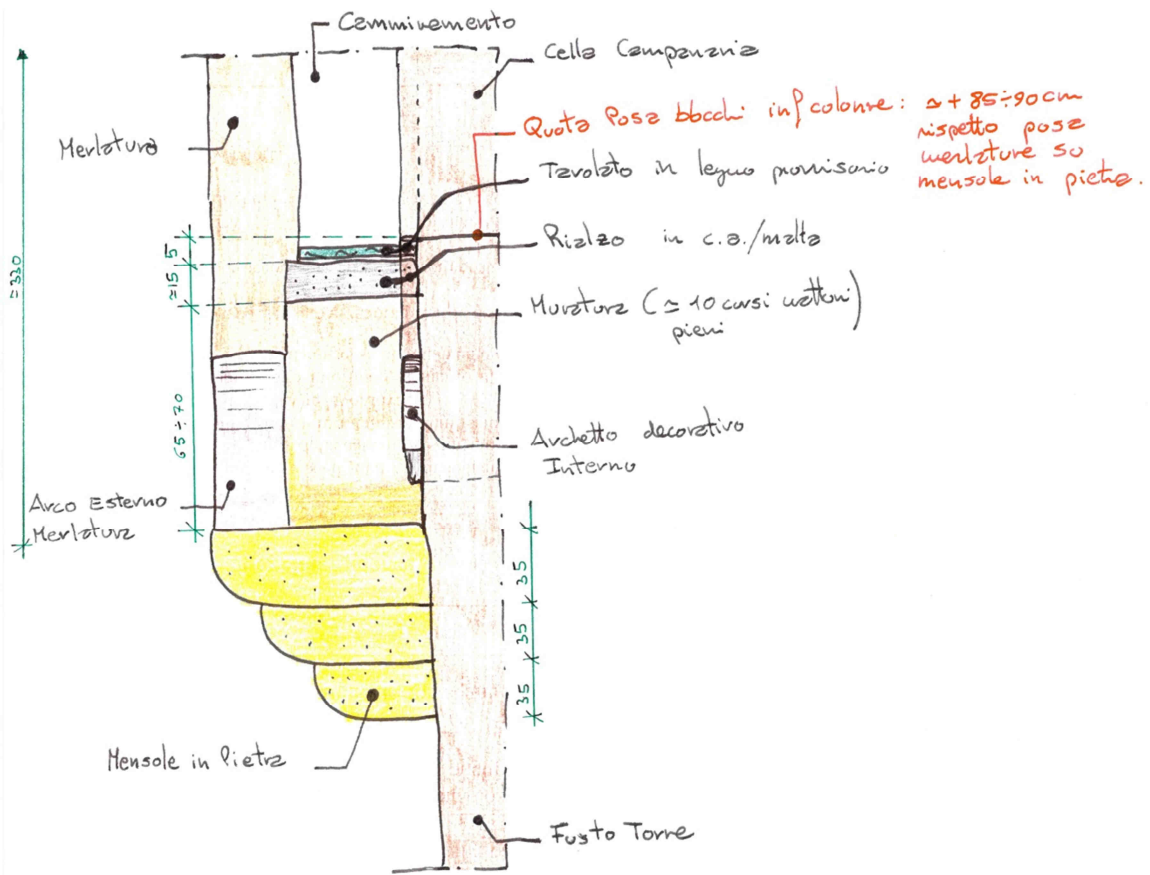 Camminamento
Cella Campanaria
Quota Posa blocchi inf colonne: ≃ + 85÷90 cm
rispetto posa
merlature su
mensole in pietra.
Merlatura
Tavolato in legno provvisorio
Rialzo in c.a./malta
Muratura (≃ 10 corsi mattoni)
pieni
≃330
5
≃15
65÷70
Archetto decorativo
Interno
Arco Esterno
Merlatura
35
35
35
Mensole in Pietra
Fusto Torre